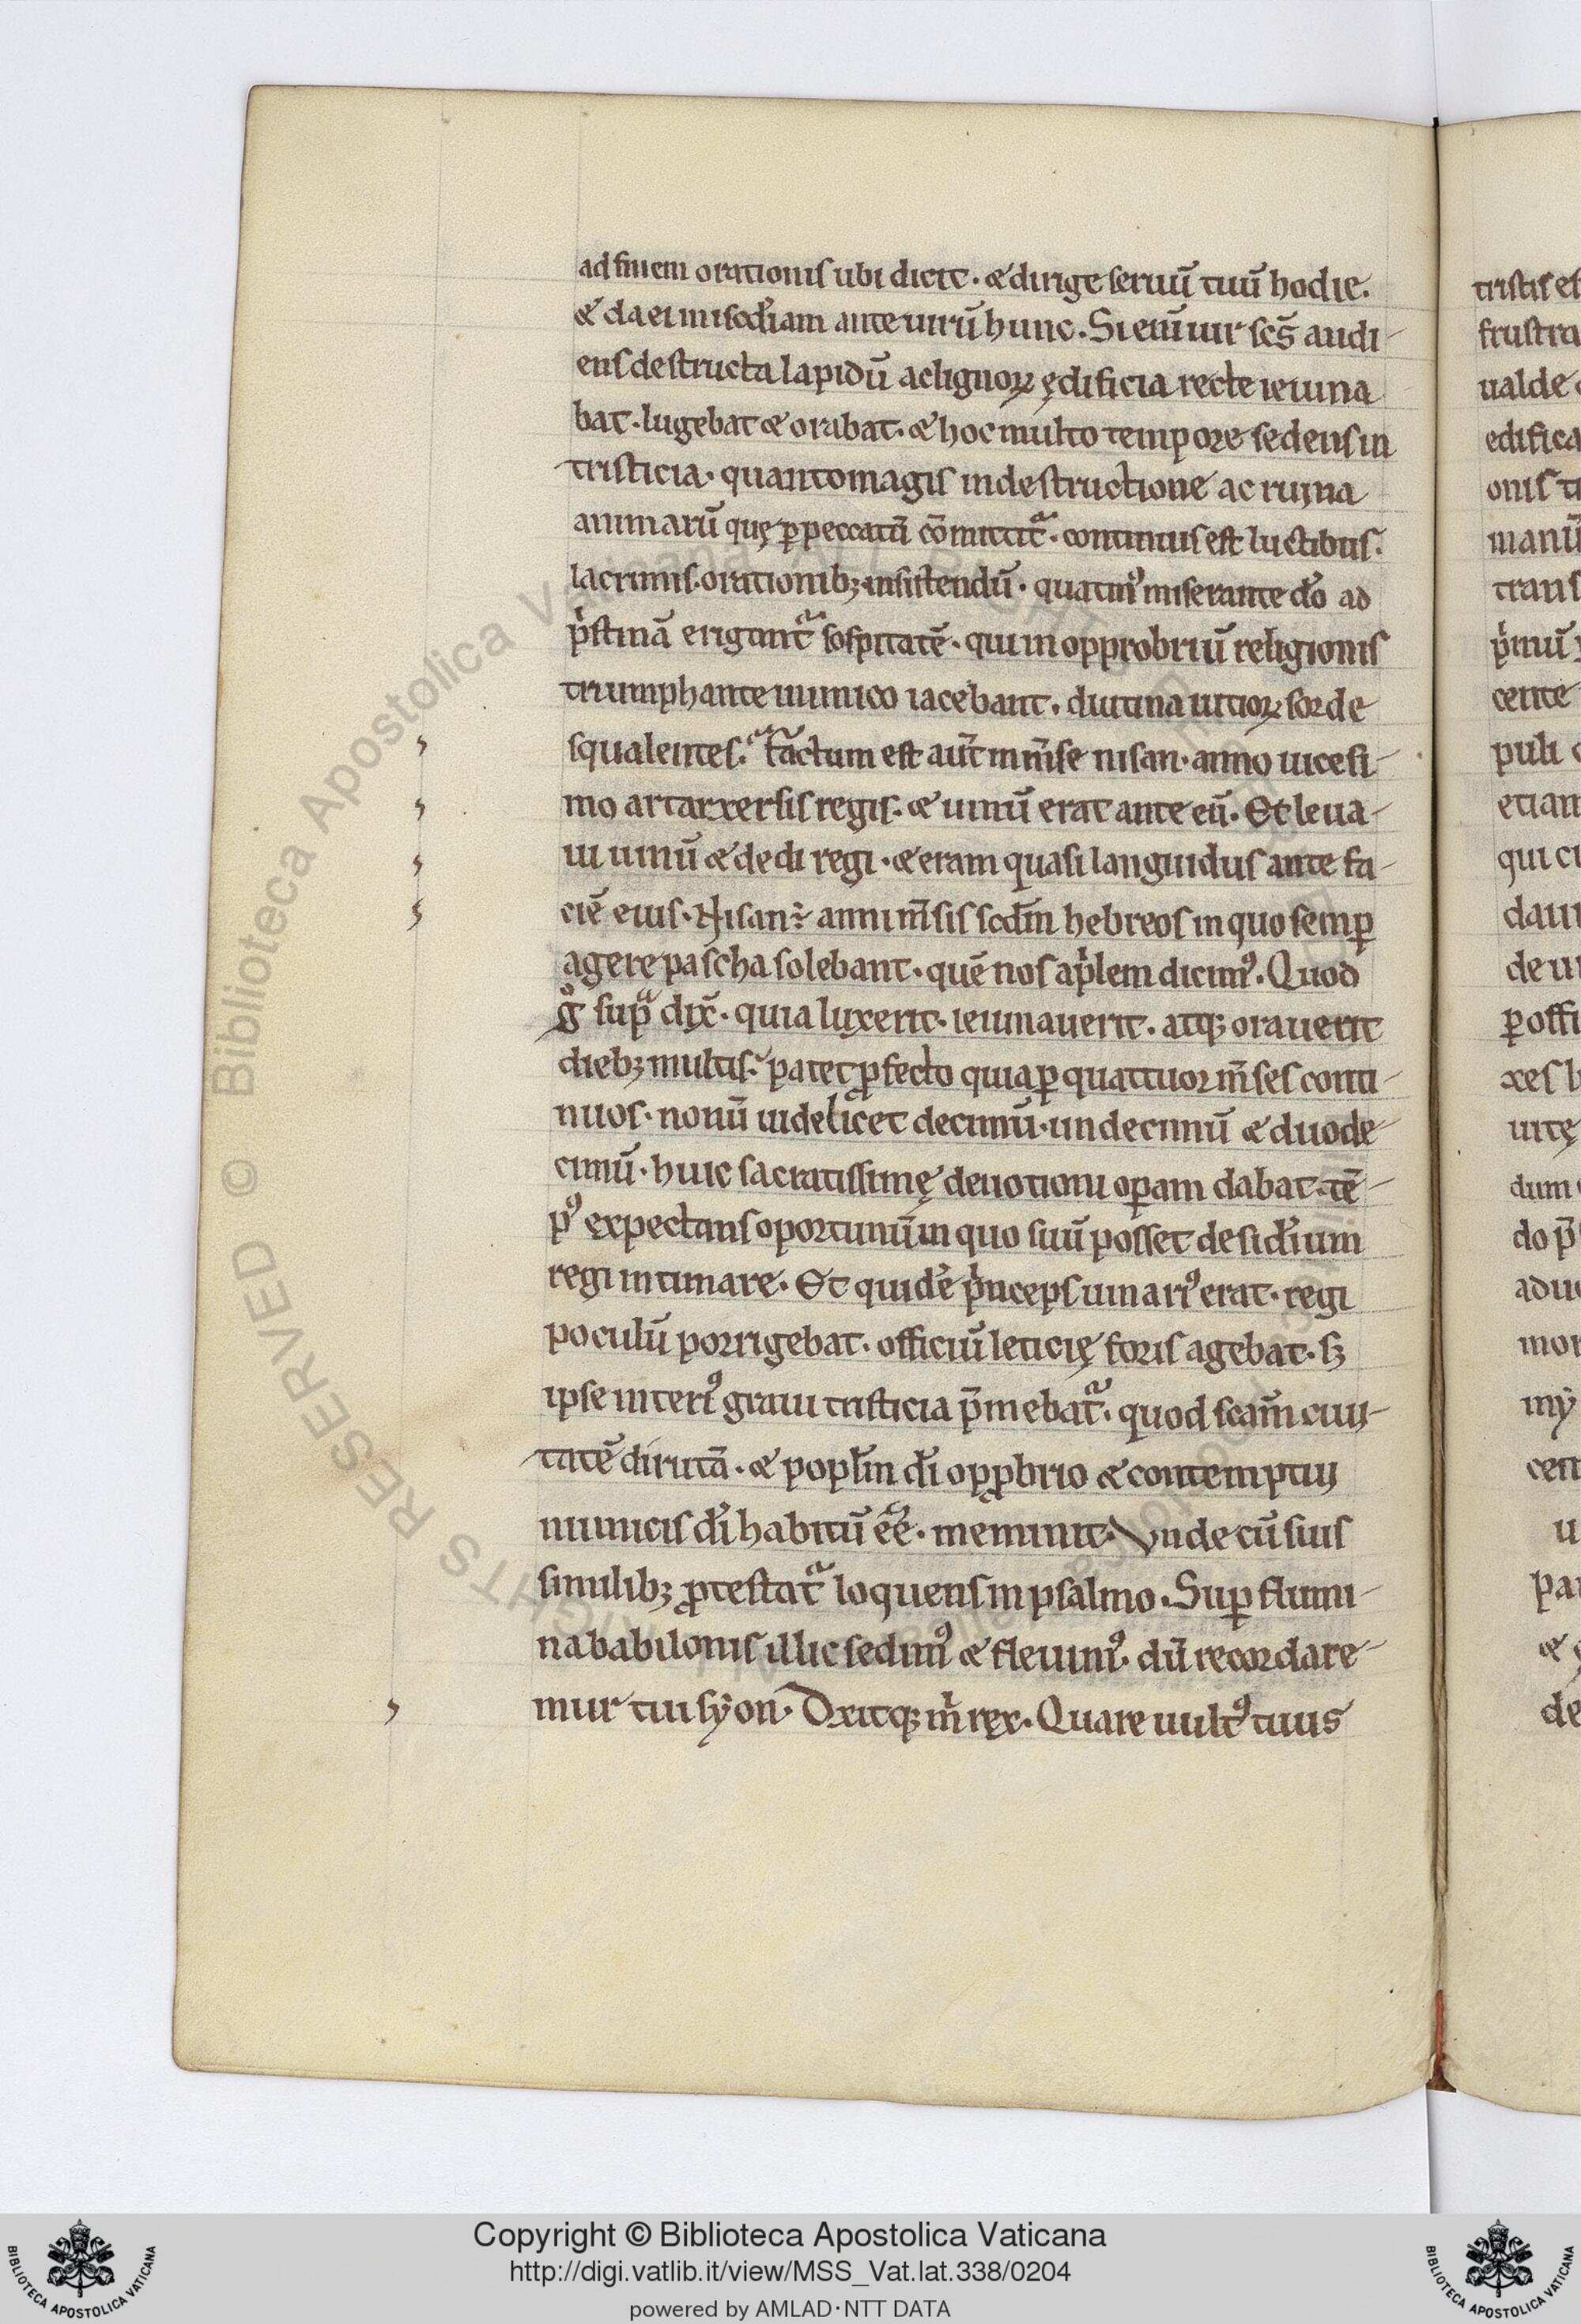 ad finem orationis ubi dicit · & dirige seruū tuū hodie.
& da ei misdiam ante uirū hunc. Si enī uir scs̄ audi-
ens destructa lapidū ac lignoꝝ ędificia recte ieiuna
bat · lugebat & orabat · & hoc multo tempore sedens in
tristicia · quanto magis in destructione ac ruina
animarū quę ꝑ peccatū cōmittit᷑ · continuis est luctibus.
lacrimis · orationibꝫ insistendū · quatinꝰ miserante dō ad
p̍stinā erigant᷑ sospitatē · qui in opprobriū religionis
triumphante inimico iacebant · diutina uitioꝝ sorde
squalentes. Factum est aūt in m̄se nisan · anno uicesi-
mo artarxersis regis · & uinū erat ante eū. Et leua-
ui uinū & dedi regi · & eram quasi languidus ante fa-
ciē eius. Nisan ÷ anni m̄sis scdm hebreos in quo semꝑ
agere pascha solebant · quē nos ap̍lem dicimꝰ. Quod
gͦ supᵃ dix̄ · quia luxerit · ieiunauerit · atqꝫ orauerit
diebꝫ multis. patet ꝓfecto quia ꝑ quattuor m̄ses conti-
nuos · nonū uidelicet decimū · undecimū & duode-
cimū · huic sacratissimę deuotioni oꝑam dabat · tē-
pꝰ expectans oportunū in quo suū posset desidium
regi intimare. Et quidē p̍nceps uinariꝰ erat · regi
poculū porrigebat · officiū leticię foris agebat · sꝫ
ipse interiꝰ graui tristicia p̄mebat᷑ · quod scam̄ ciui-
tatē dirutā · & popl̄m dī opꝓbrio & contemptui
inimicis dī habitū ēē · meminit. Vnde cū suis
similibꝫ ꝓtestat᷑ loquens in psalmo. Suꝑ flumi-
na babilonis illic sedimꝰ & fleuimꝰ · dū recordare-
mur tui sẏon. Dxitqꝫ m̍ rex. Quare uultꝰ tuus
tristis es
frustra
ualde
edifica
onis
manū
trans
p̍mū
cente
puli
etiam
qui
daui
de
ꝑ offi
xes
uitę
dum
do p̄
adu
mor
cent
u
&
de
Copyright © Biblioteca Apostolica Vaticana
http://digi.vatlib.it/view/MSS_Vat.lat.338/0204
powered by AMLAD·NTT DATA
BIBLIOTECA APOSTOLICA VATICANA
BIBLIOTECA APOSTOLICA VATICANA